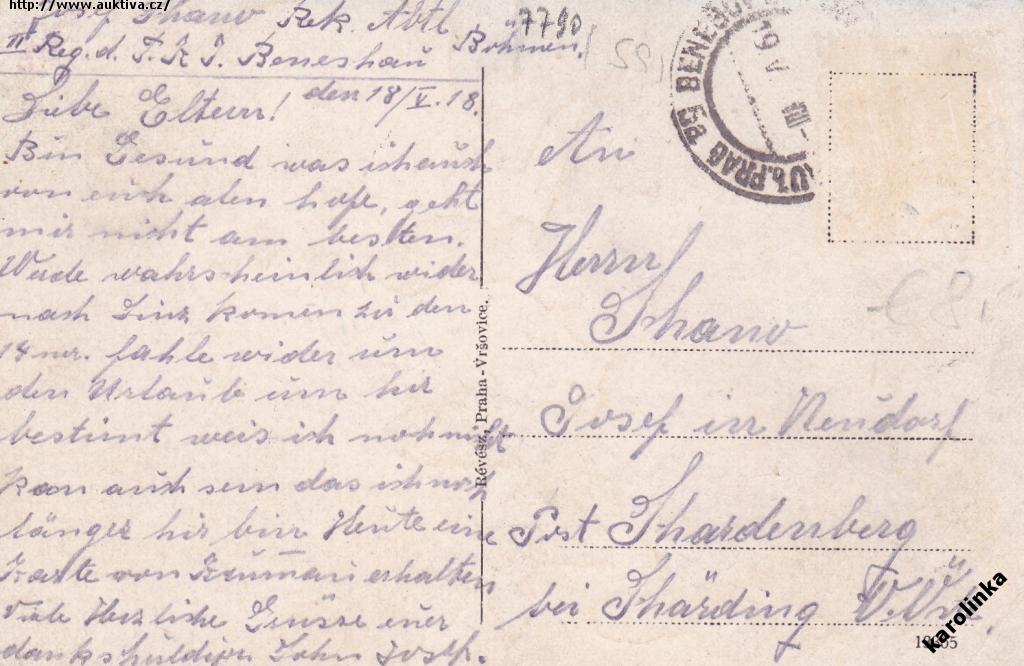 http://www.auktiva.cz/
Josef Shano Rek. Abtl
III Reg. d. T. K. J. Beneshau Böhmen.
7790
den 18/V. 18.
Liebe Eltern!
Bin Gesund was ich auch
von euch alen hofe, geht
mir nicht am besten.
Werde wahrsheinlich wider
nach Linz komen zu den
14 nr. fahle wider um
den Urlaub um hir
bestimt weis ich noh nicht
kan auch sein das ich noch
länger hir bin Heute eine
Karte von Krumau erhalten
Viele Herzliche Grüsse euer
dankshuldiger Sohn Josef.
Révész, Praha-Vršovice.
BENE
PRAG
An
Herrn
Shano
Josef in Neudorf
Post Shardenberg
bei Shärding
karolinka